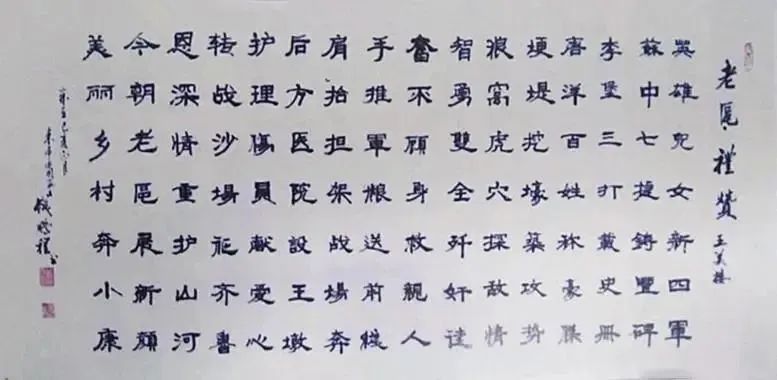 老區禮贊
王美楼
英雄兒女新四軍
蘇中七捷鑄豐碑
李堡三打載史冊
唐洋百姓称豪傑
埂堤挖壕築攻势
浪窩虎穴探敌情
智勇雙全歼奸
奮不顾身救親人
手推軍粮送前綫
肩抬担架战場奔
后方医院設王墩
护理傷員献愛心
转战沙場齐鲁
恩深情重护山河
今朝老區展新顔
美丽乡村奔小康
己亥六月